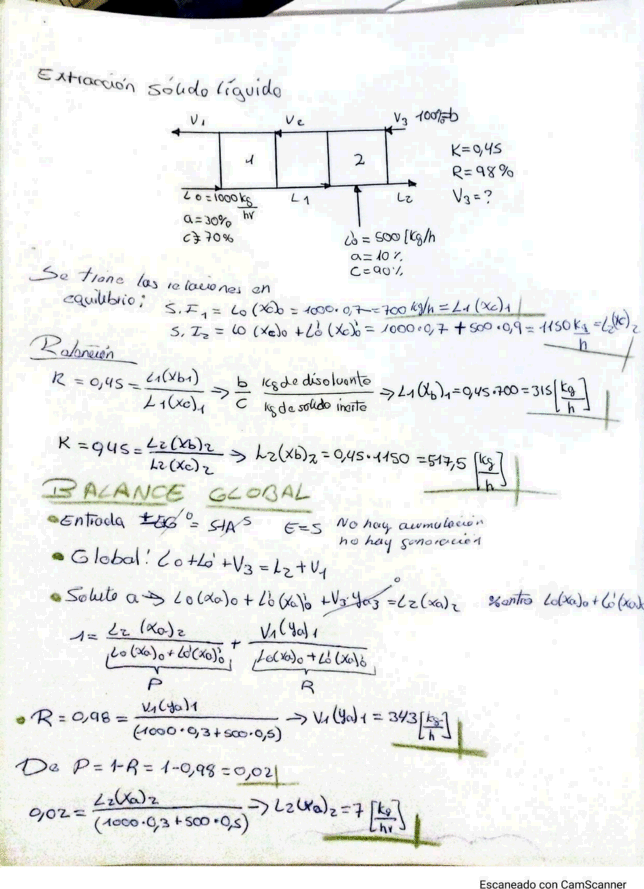 Extracción sólido líquido
V₁ V₂ V₃ 100% b
1 2
K=0,45
R=98%
V₃=?
L0=1000 kg/hr
a=30%
c=70%
L₁
L₂
L0' = 500 [kg/h
a=10%
c=90%
Se tiene las relaciones en
equilibrio:
S.I₁ = L0(xc)0 = 1000·0,7 = 700 kg/h = L₁(xc)₁
S.I₂ = L0(xc)0 + L0'(xc)0' = 1000·0,7 + 500·0,9 = 1150 kg/h = L₂(xc)₂
Retención
K = 0,45 = L₁(xb₁)/L₁(xc)₁ → b/c kg de disolvente/kg de solido inerte → L₁(xb)₁ = 0,45·700 = 315 [kg/h]
K = 0,45 = L₂(xb)₂/L₂(xc)₂ → L₂(xb)₂ = 0,45·1150 = 517,5 [kg/h]
BALANCE GLOBAL
• Entrada ±EG⁰ = S±A⁰ E=S No hay acumulación
no hay generación
• Global: L0+L0'+V₃ = L₂+V₁
• Soluto a → L0(xa)0 + L0'(xa)0' + V₃·ya₃ ⁰ = L₂(xa)₂ %entro L0(xa)0 + L0'(xa)
1 = L₂(xa)₂/L0(xa)0+L0'(xa)0' + V₁(ya)₁/L0(xa)0+L0'(xa)0'
P R
• R = 0,98 = V₁(ya)₁/(1000·0,3+500·0,5) → V₁(ya)₁ = 343 [kg/h]
De P = 1-R = 1-0,98 = 0,02
0,02 = L₂(xa)₂/(1000·0,3+500·0,5) → L₂(xa)₂ = 7 [kg/hr]
Escaneado con CamScanner